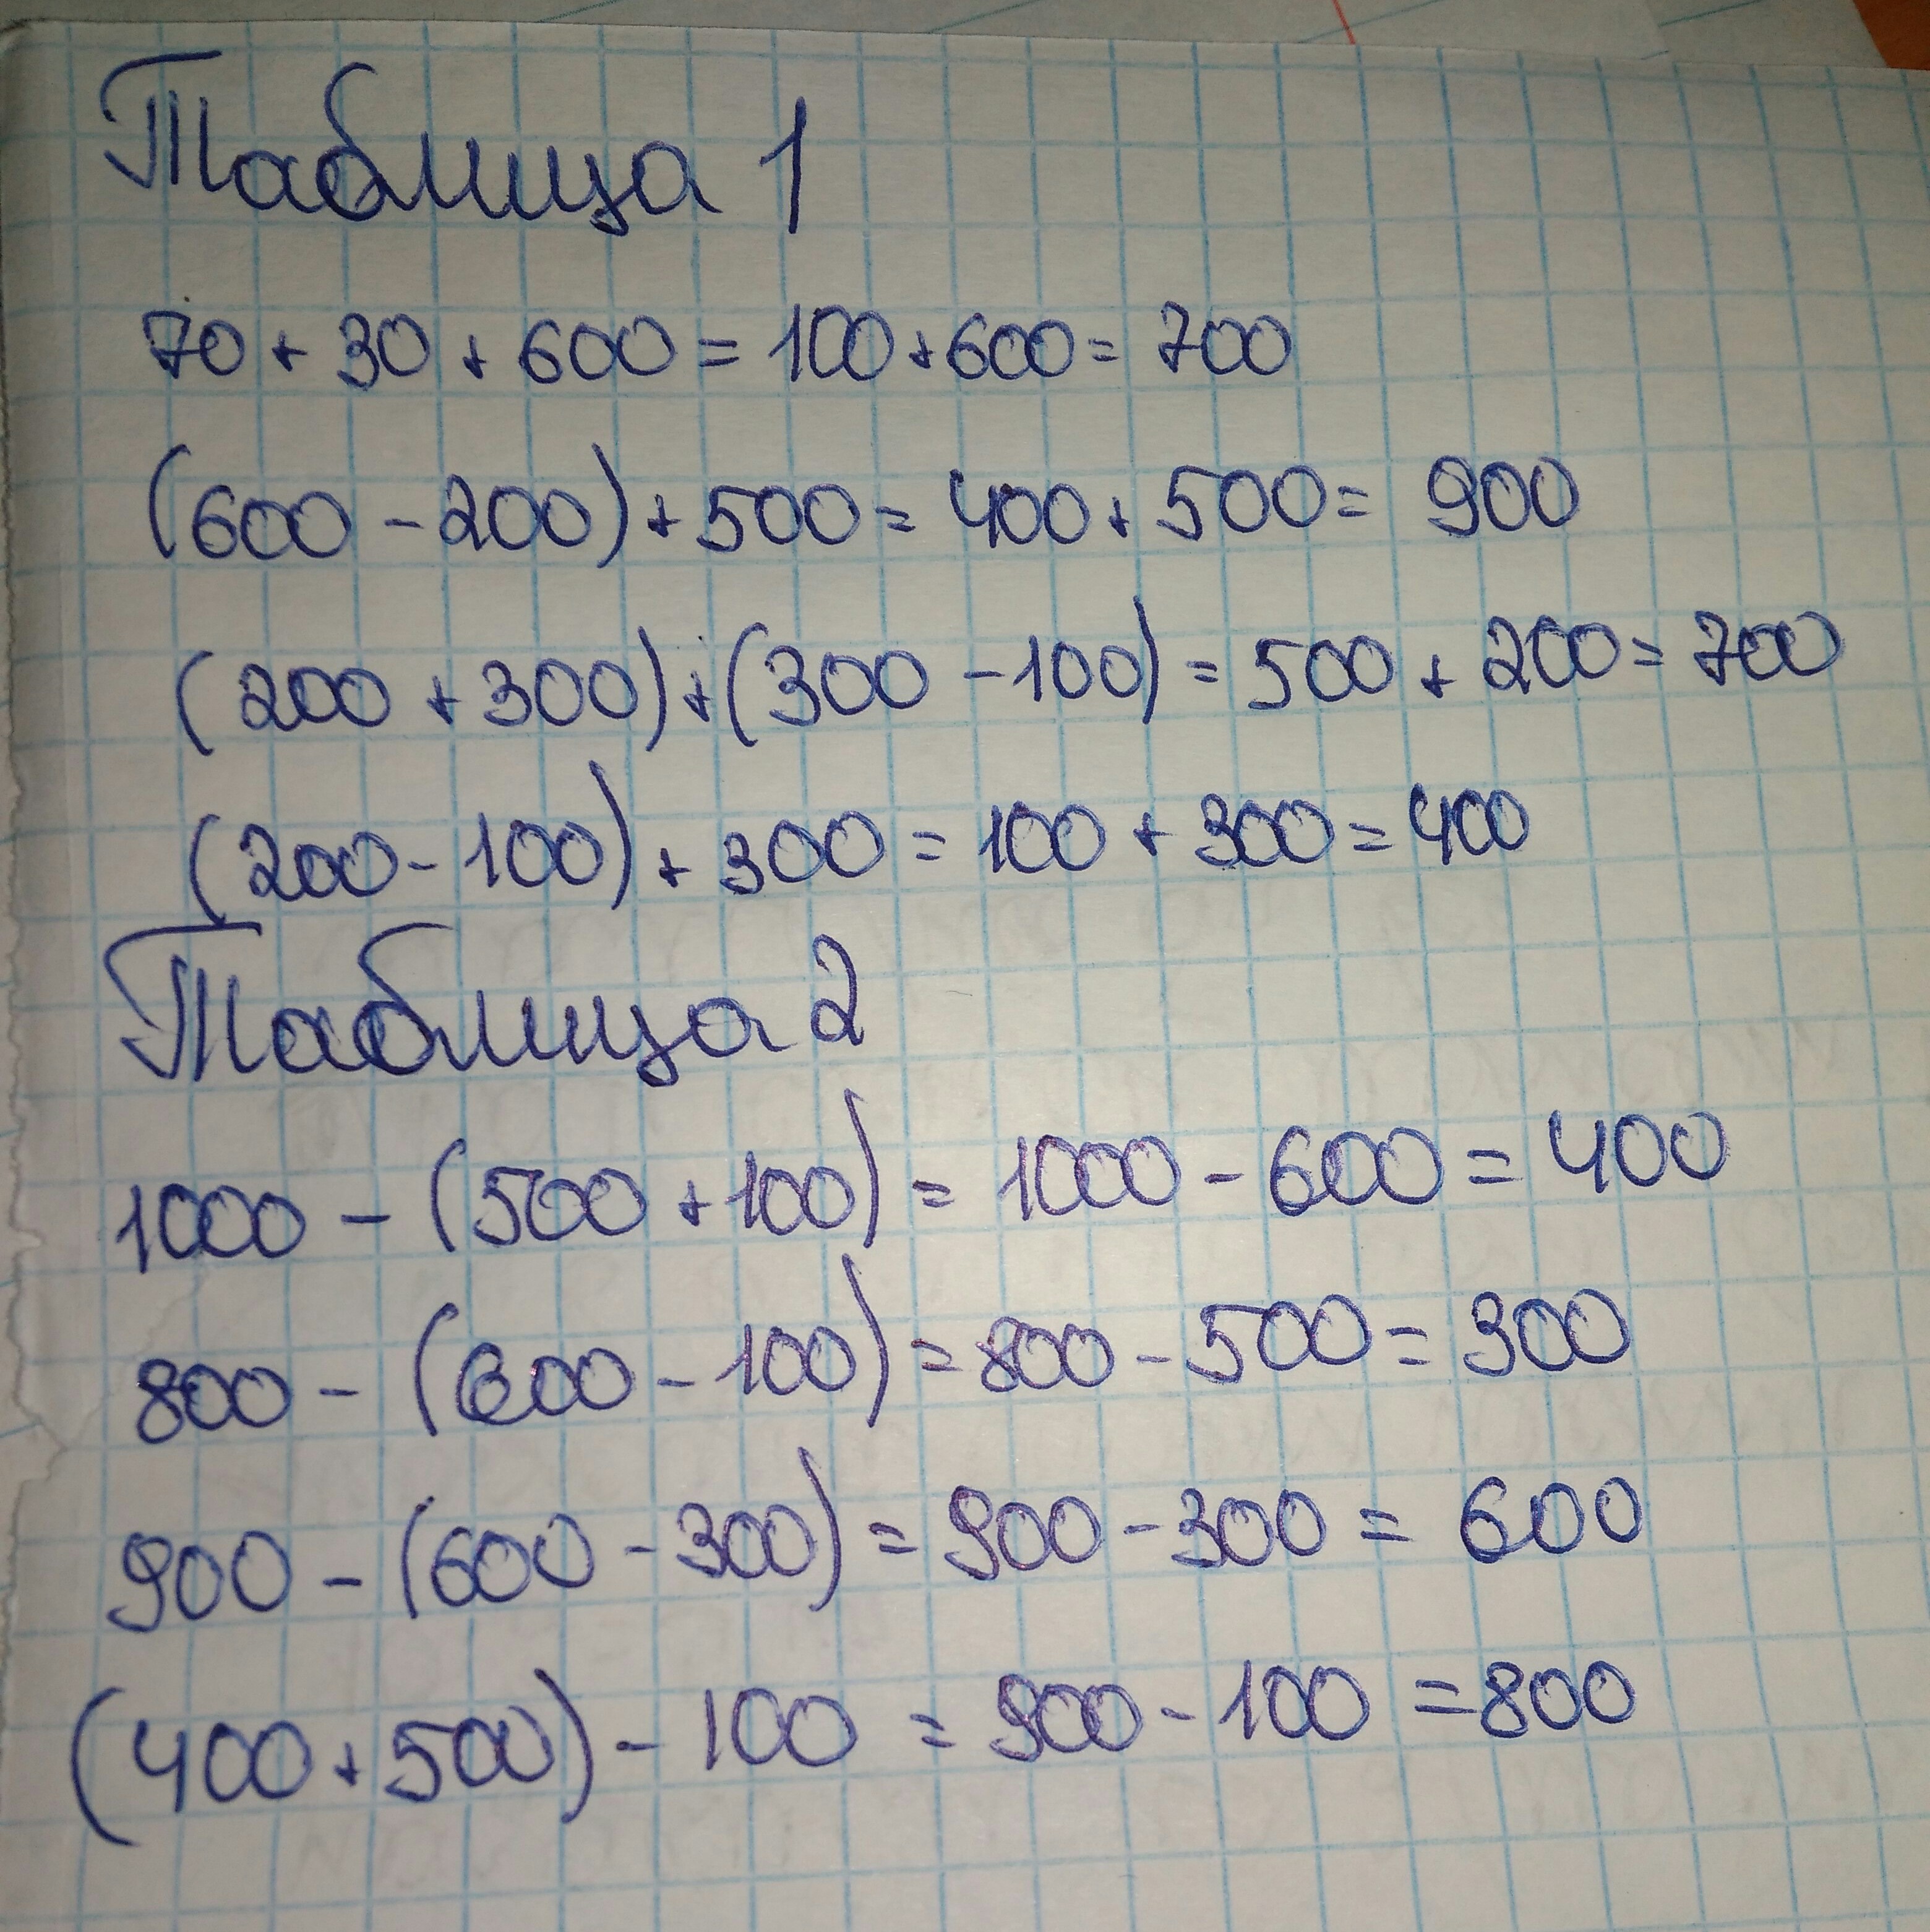 Таблица 1
70 + 30 + 600 = 100 + 600 = 700
(600 - 200) + 500 = 400 + 500 = 900
(200 + 300) + (300 - 100) = 500 + 200 = 700
(200 - 100) + 300 = 100 + 300 = 400
Таблица 2
1000 - (500 + 100) = 1000 - 600 = 400
800 - (600 - 100) = 800 - 500 = 300
900 - (600 - 300) = 900 - 300 = 600
(400 + 500) - 100 = 900 - 100 = 800